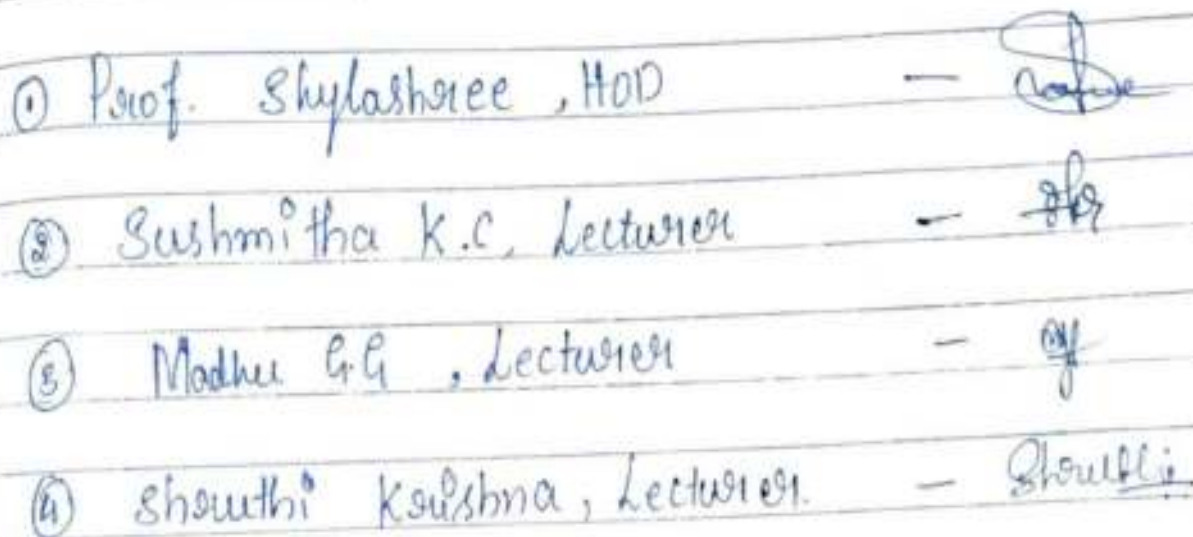 ① Prof. Shylashree, HOD -
② Sushmitha K.C, Lecturer -
③ Madhu G.G, Lecturer -
④ Shruthi Krishna, Lecturer. - Shruthi